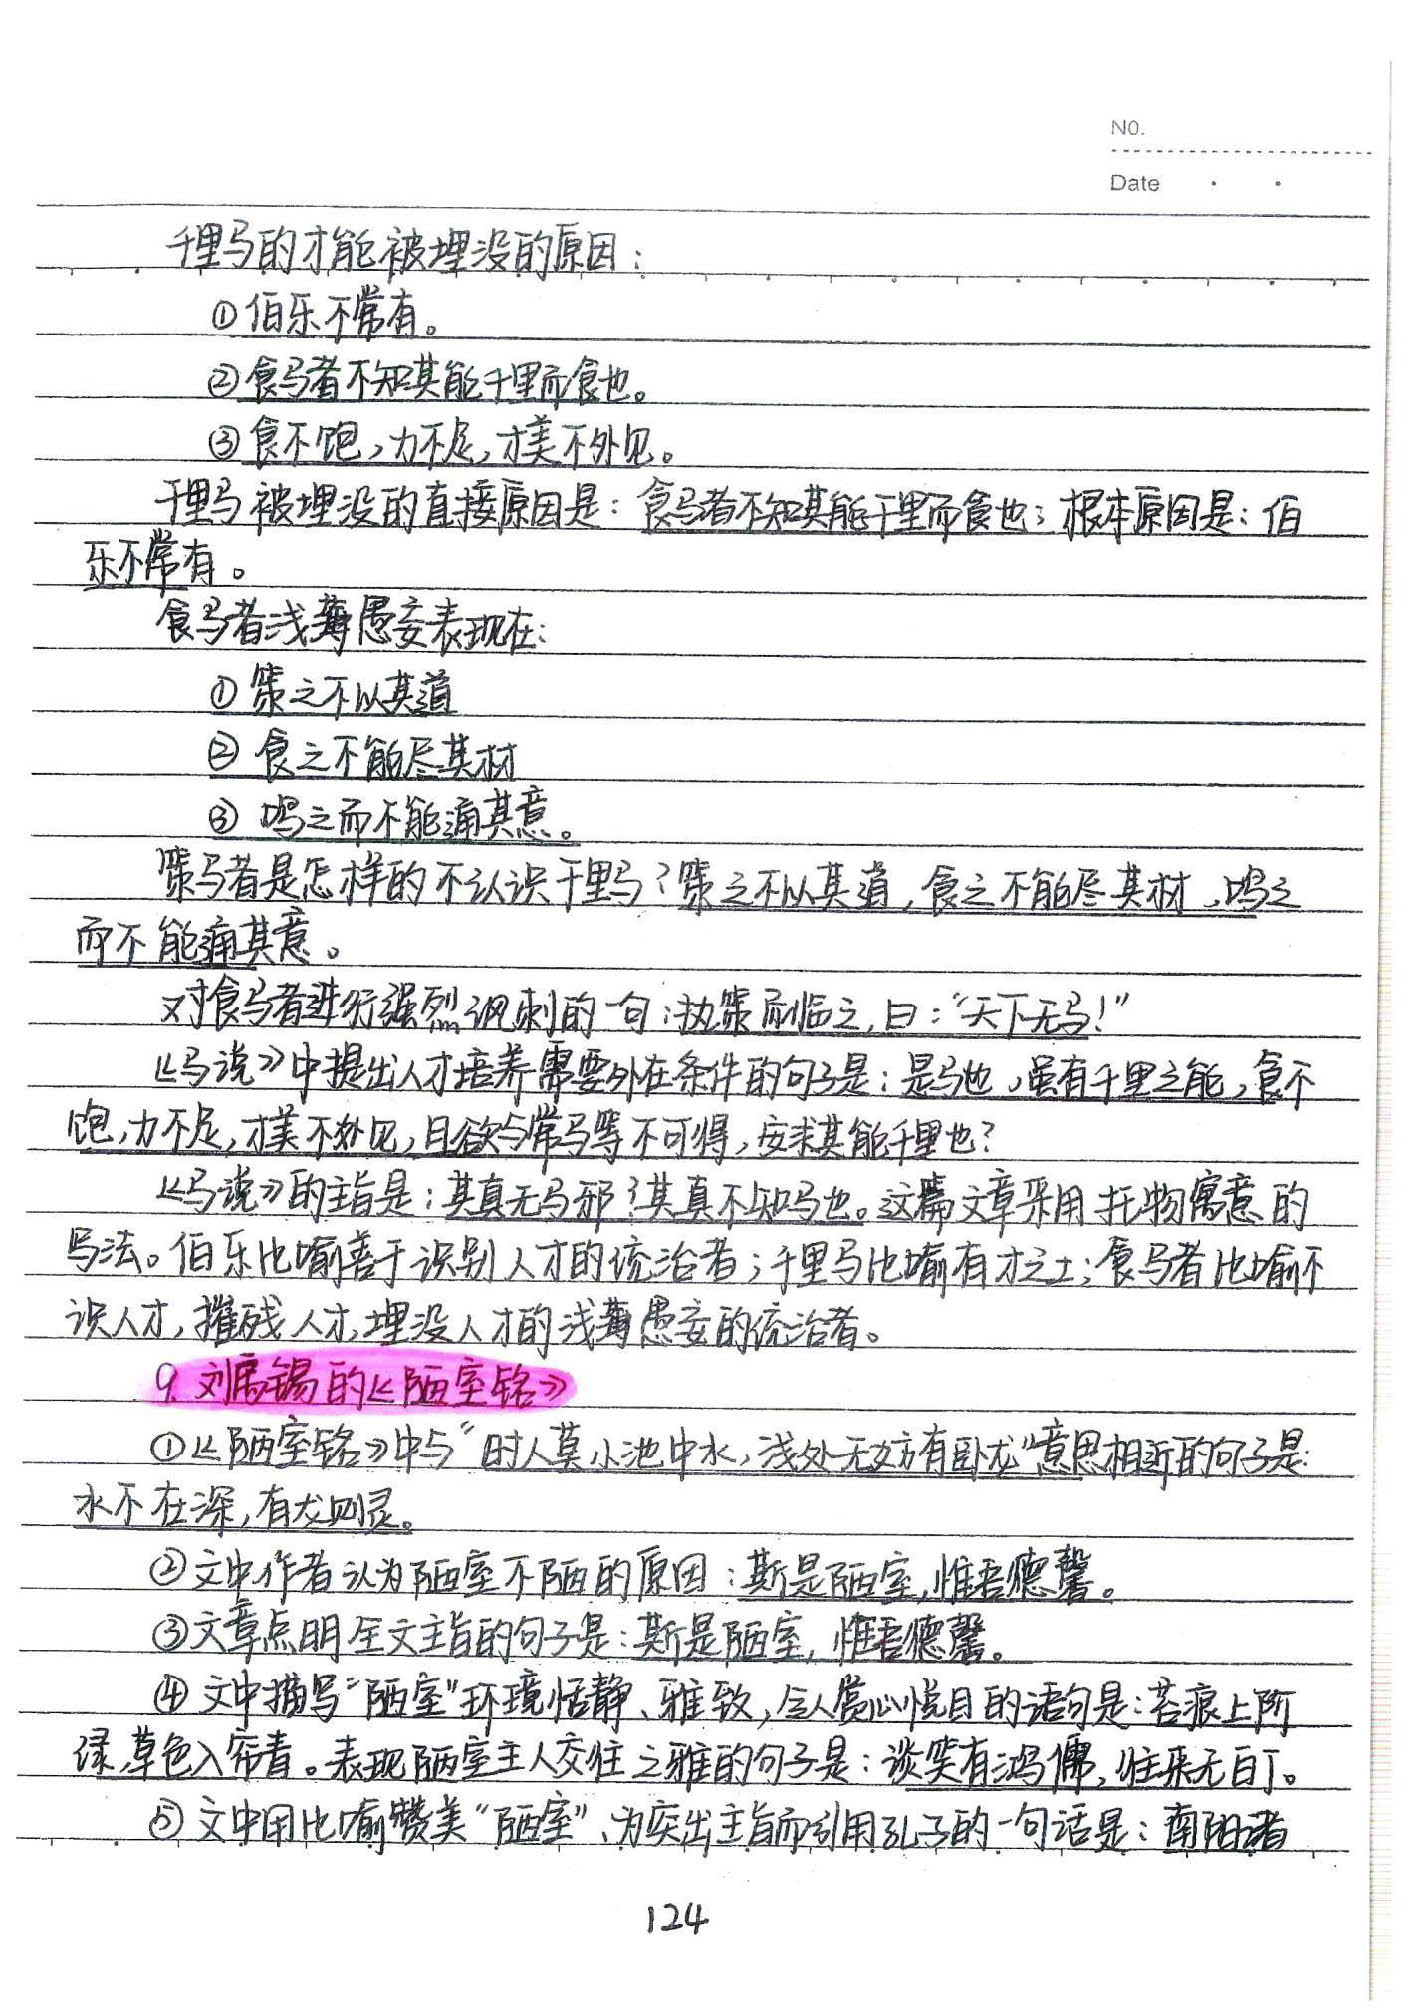 NO.
Date
千里马的才能被埋没的原因：
①伯乐不常有。
②食马者不知其能千里而食也。
③食不饱，力不足，才美不外见。
千里马被埋没的直接原因是：食马者不知其能千里而食也；根本原因是：伯
乐不常有。
食马者浅薄愚妄表现在：
①策之不以其道
②食之不能尽其材
③鸣之而不能通其意。
策马者是怎样的不认识千里马？策之不以其道，食之不能尽其材，鸣之
而不能通其意。
对食马者进行强烈讽刺的一句：执策而临之，曰：“天下无马！”
《马说》中提出人才培养需要外在条件的句子是：是马也，虽有千里之能，食不
饱，力不足，才美不外见，且欲与常马等不可得，安求其能千里也？
《马说》的主旨是：其真无马邪？其真不知马也。这篇文章采用托物寓意的
写法。伯乐比喻善于识别人才的统治者；千里马比喻有才之士；食马者比喻不
识人才，摧残人才，埋没人才的浅薄愚妄的统治者。
9. 刘禹锡的《陋室铭》
①《陋室铭》中与“时人莫小池中水，浅处无妨有卧龙”意思相近的句子是：
水不在深，有龙则灵。
②文中作者认为陋室不陋的原因：斯是陋室，惟吾德馨。
③文章点明全文主旨的句子是：斯是陋室，惟吾德馨。
④文中描写“陋室”环境恬静、雅致，令人赏心悦目的语句是：苔痕上阶
绿，草色入帘青。表现陋室主人交往之雅的句子是：谈笑有鸿儒，往来无白丁。
⑤文中用比喻赞美“陋室”、为突出主旨而引用孔子的一句话是：南阳诸
124